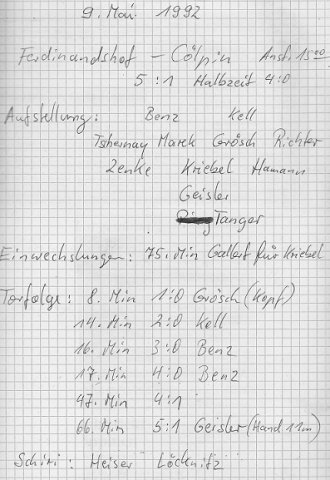 9. Mai 1992
Ferdinandshof - Cölpin Anst. 15⁰⁰
5 : 1 Halbzeit 4:0
Aufstellung: Benz Kell
Tshernay Marek Grösch Richter
Zenke Kriebel Hamann
Geisler
Tanger
Einwechslungen: 75. Min Gallert für Kriebel
Torfolge: 8. Min 1:0 Grösch (Kopf)
14. Min 2:0 Kell
16. Min 3:0 Benz
17. Min 4:0 Benz
47. Min 4:1
66. Min 5:1 Geisler (Hand 11m)
Schiri: Meiser Löcknitz